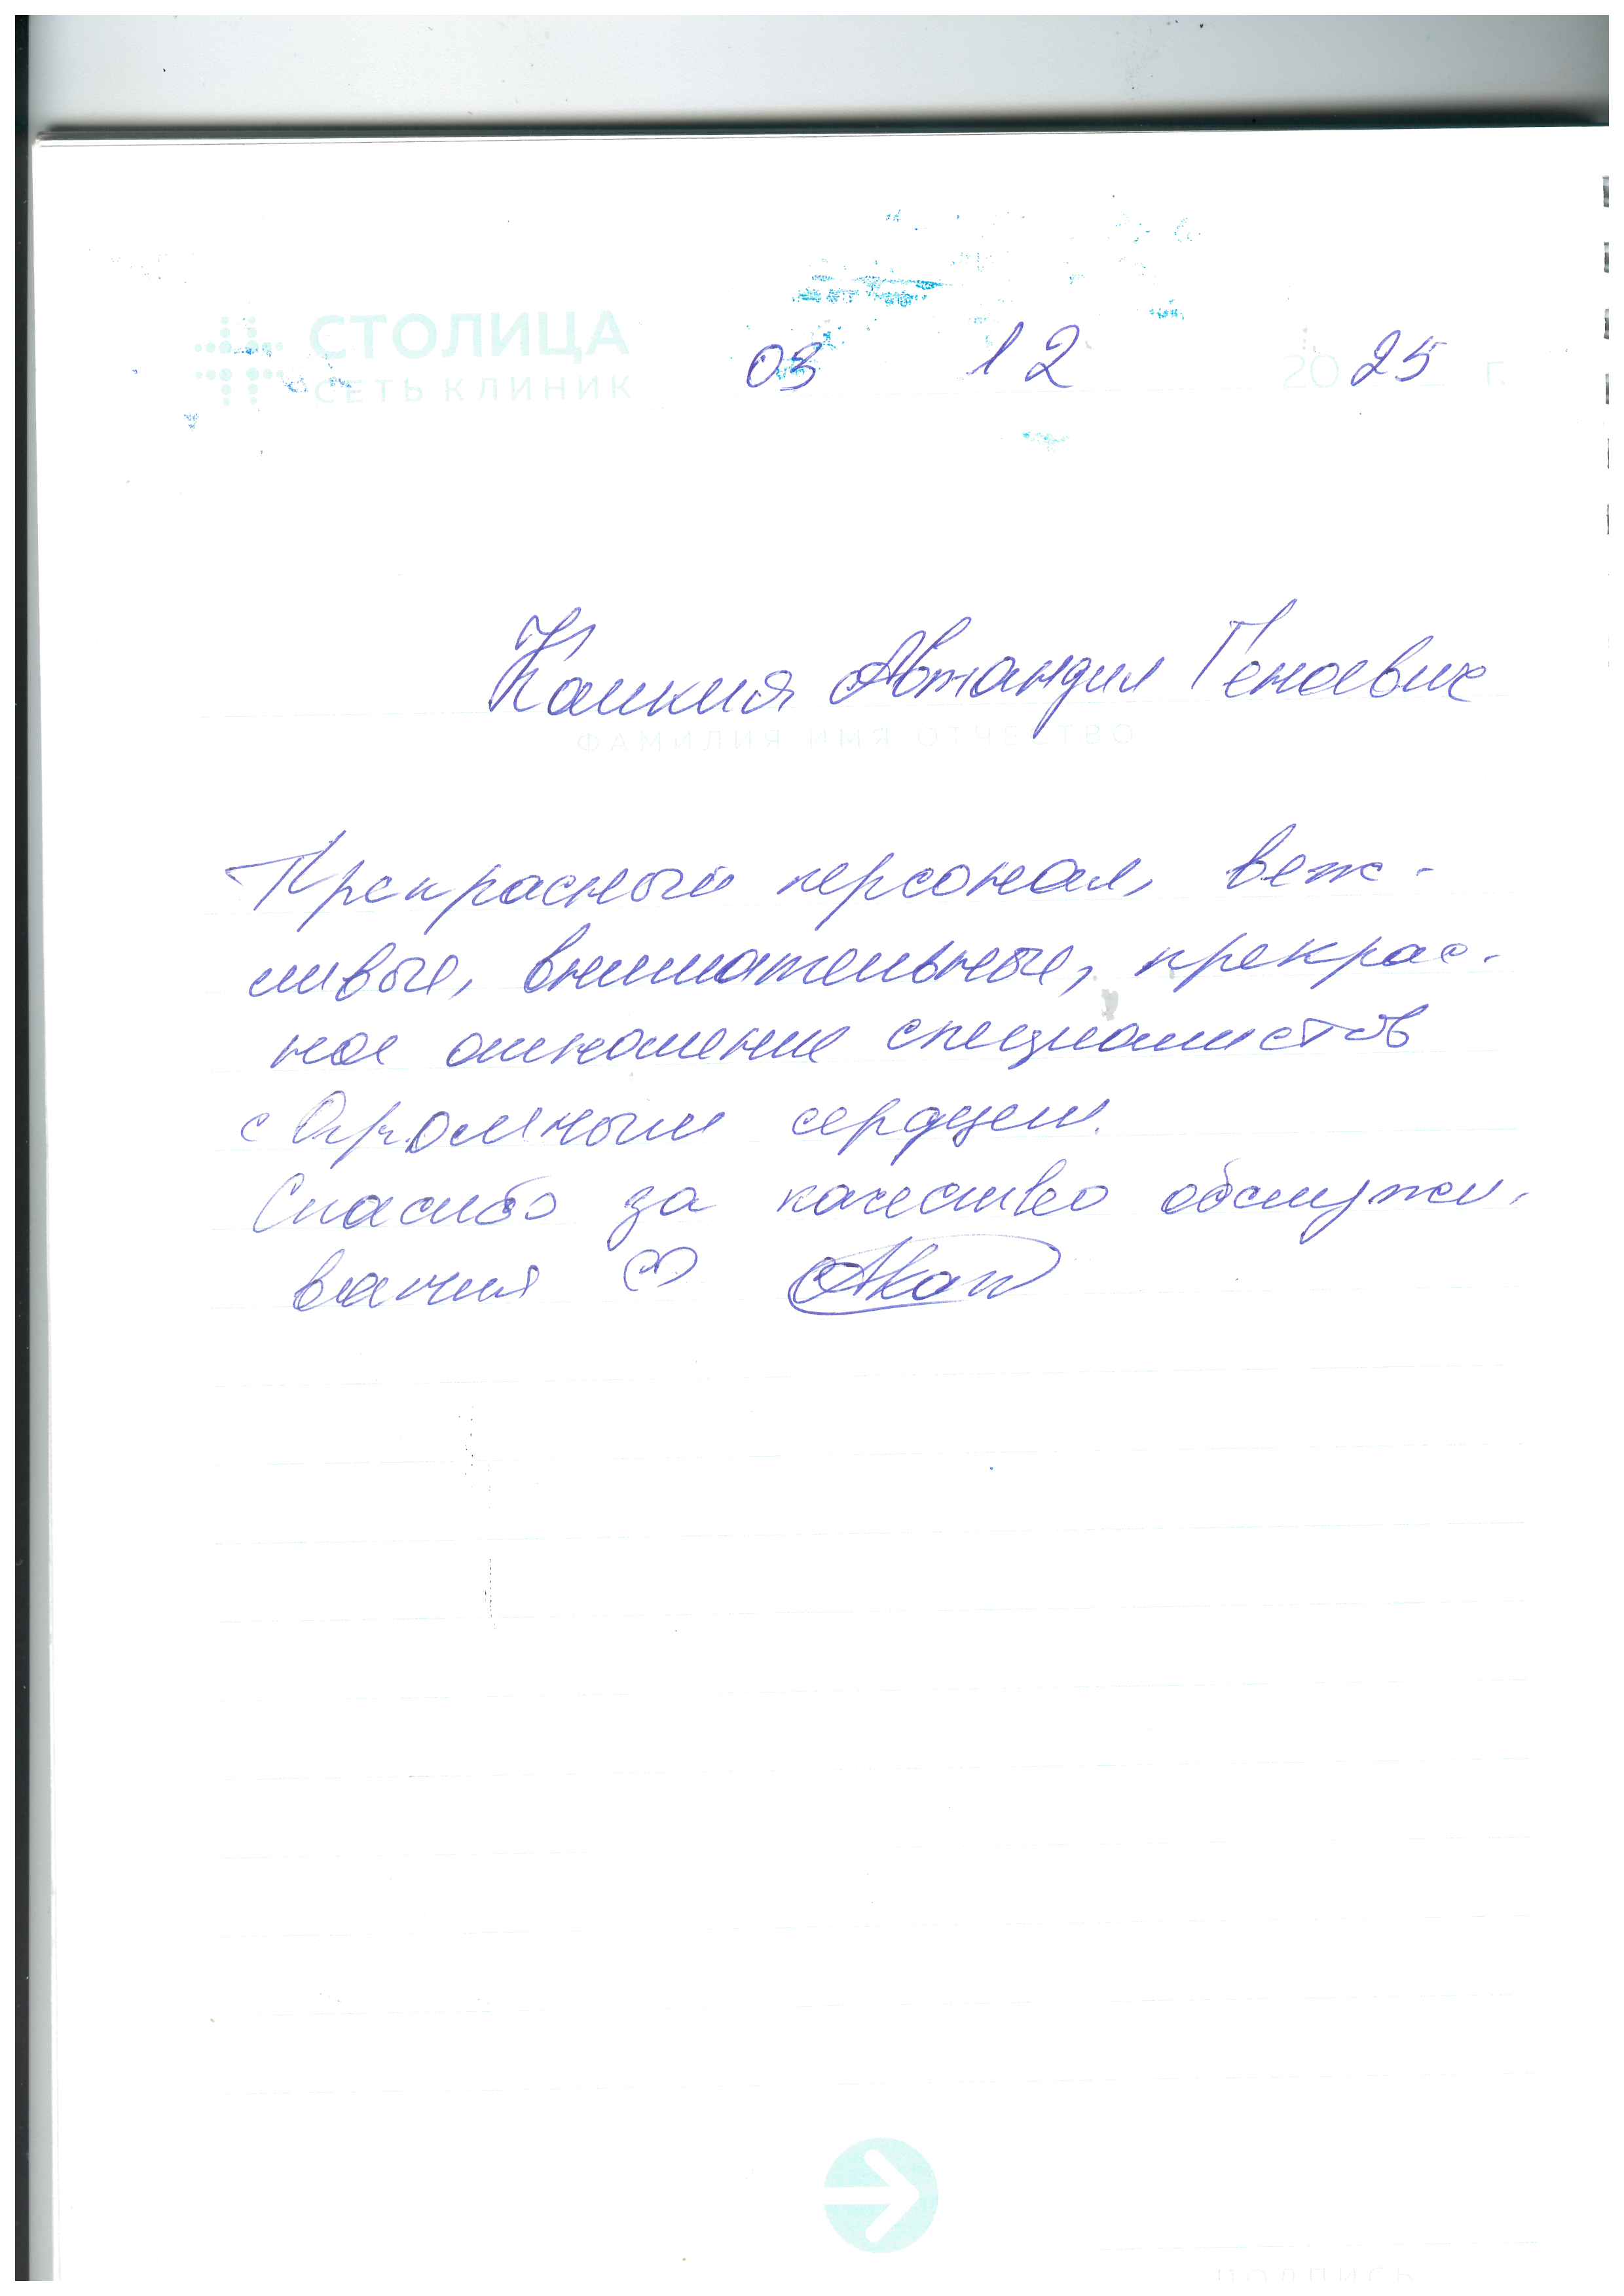 СТОЛИЦА
СЕТЬ КЛИНИК
03 12 2025 г.
Каикия Автандил Генаевич
ФАМИЛИЯ ИМЯ ОТЧЕСТВО
Прекрасный персонал, веж-
ливые, внимательные, прекрас-
ное отношение специалистов
с Огромным сердцем.
Спасибо за качество обслужи-
вания
ПОДПИСЬ